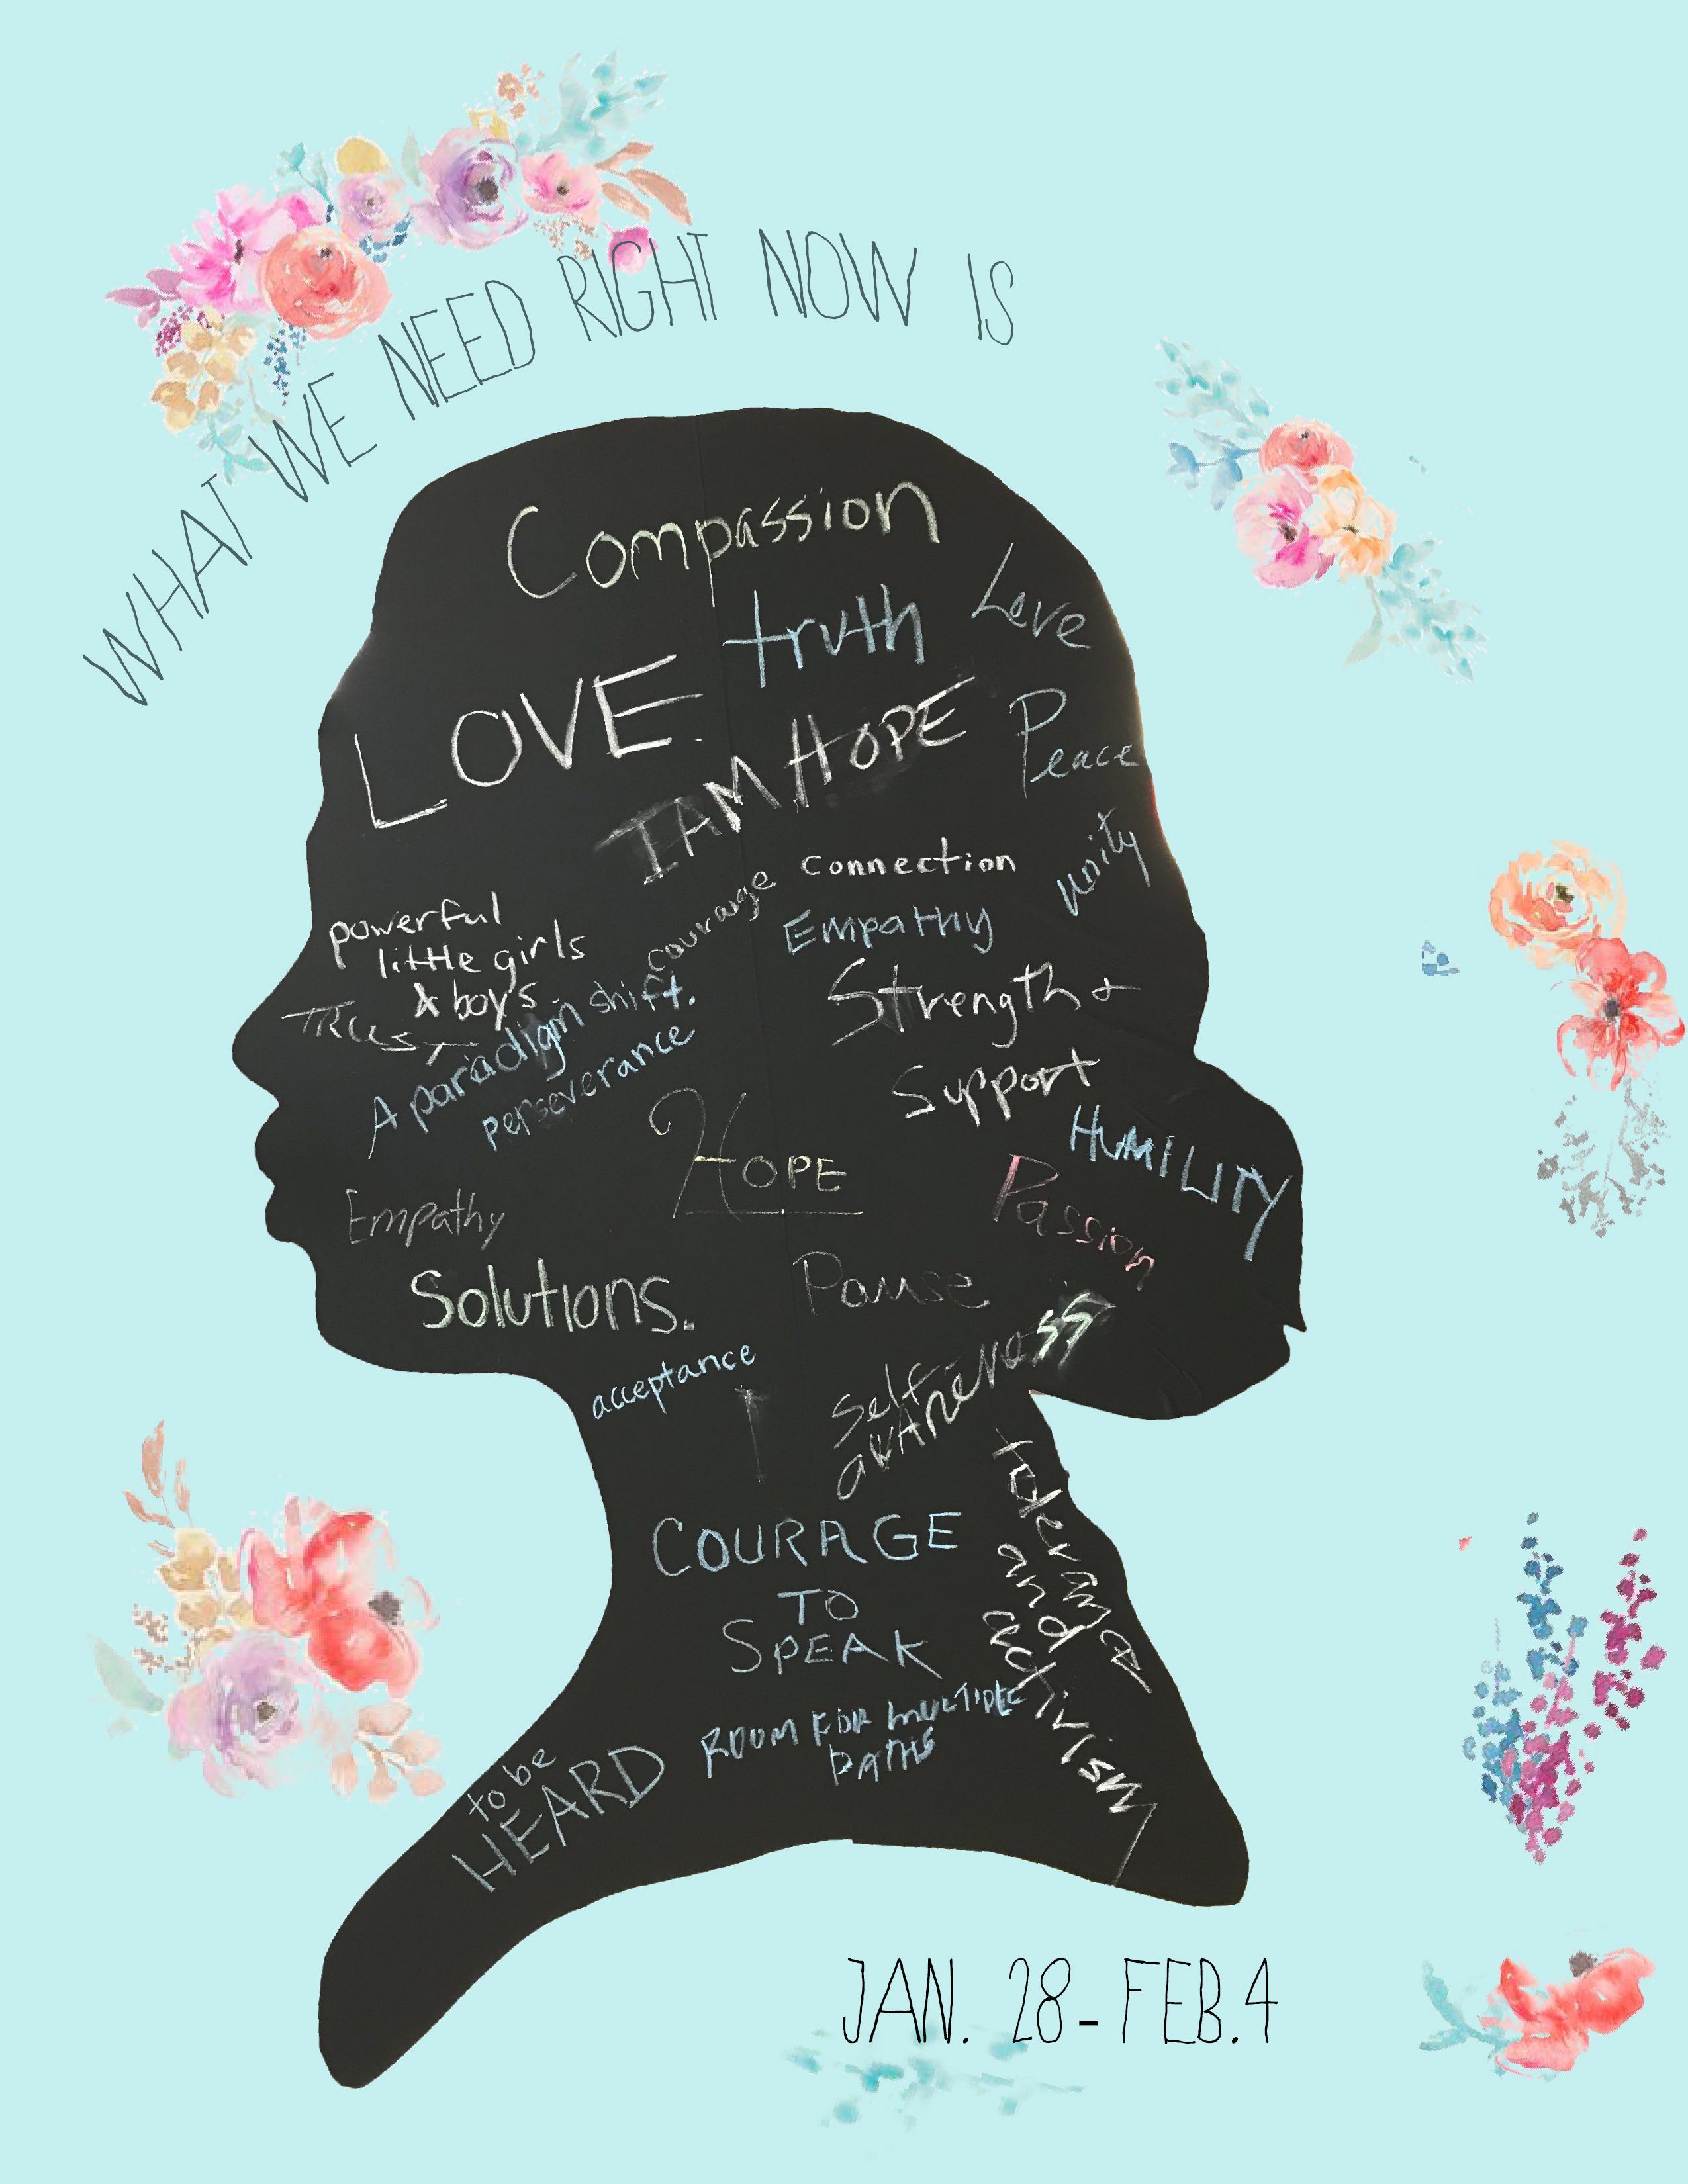 WHAT WE NEED RIGHT NOW IS
Compassion
truth
Love
LOVE.
I AM HOPE
Peace
connection
unity
courage
powerful
little girls
& boys
Empathy
TRUST
A paradigm shift.
Strength +
Support
perseverance
HOPE
HUMILITY
Passion
Empathy
Solutions.
Pause
acceptance
Self
awareness
COURAGE
TO
SPEAK
tolerance
and
activism
ROOM FOR MULTIPLE
PATHS
to be
HEARD
JAN. 28-FEB.4